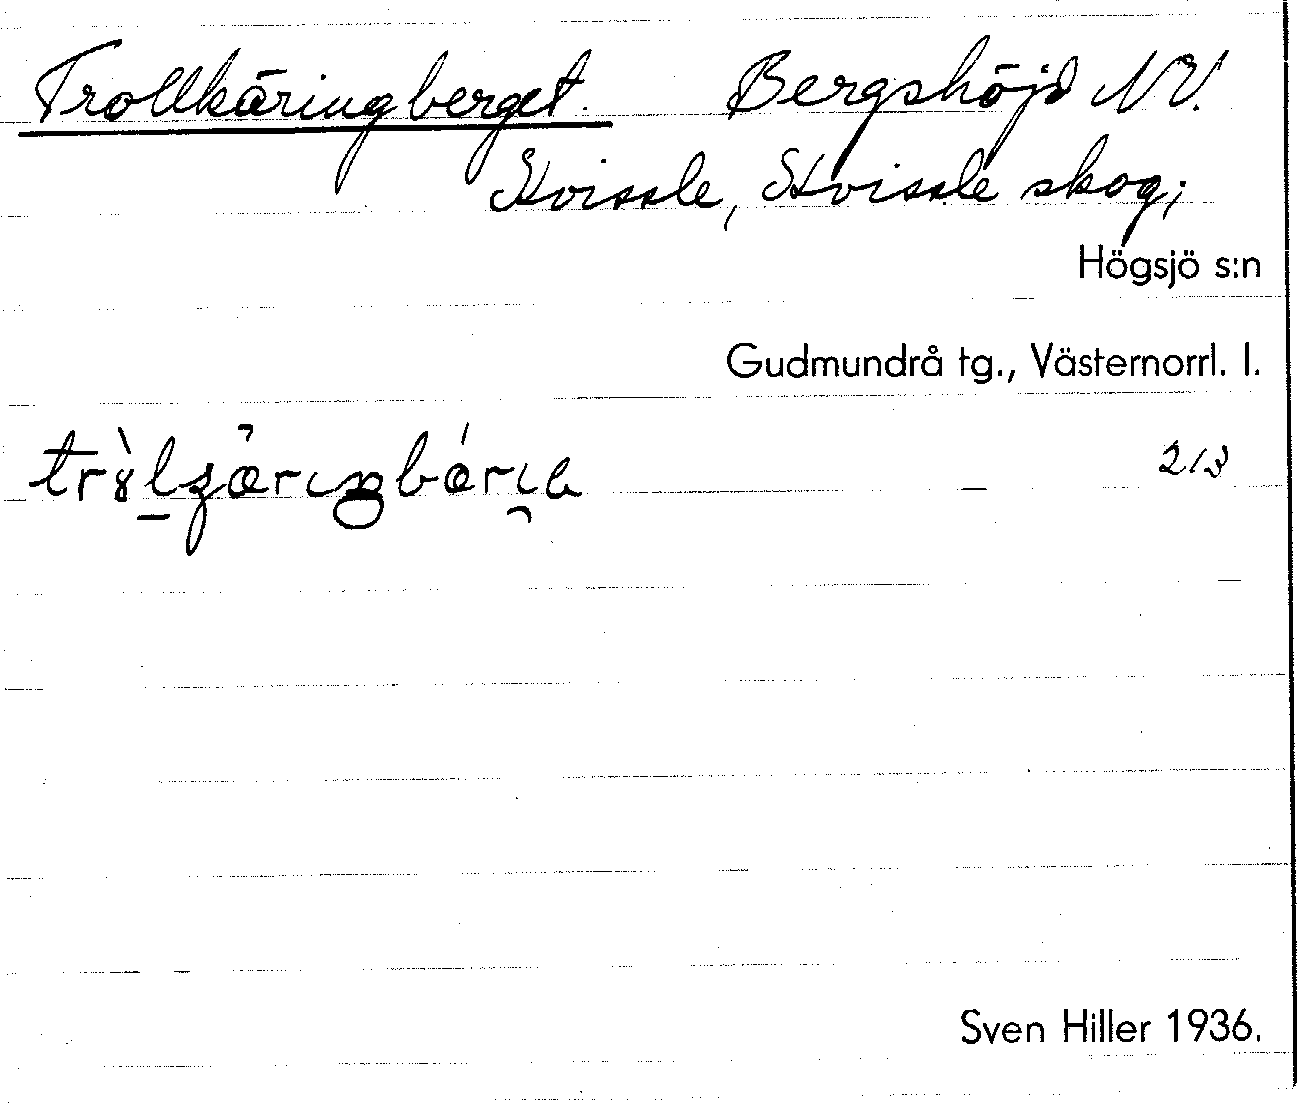 Trollkäringberget. Bergshöjd NV.
Stvissle, Stvissle skog;
Högsjö s:n
Gudmundrå tg., Västernorrl. l.
213
Sven Hiller 1936.